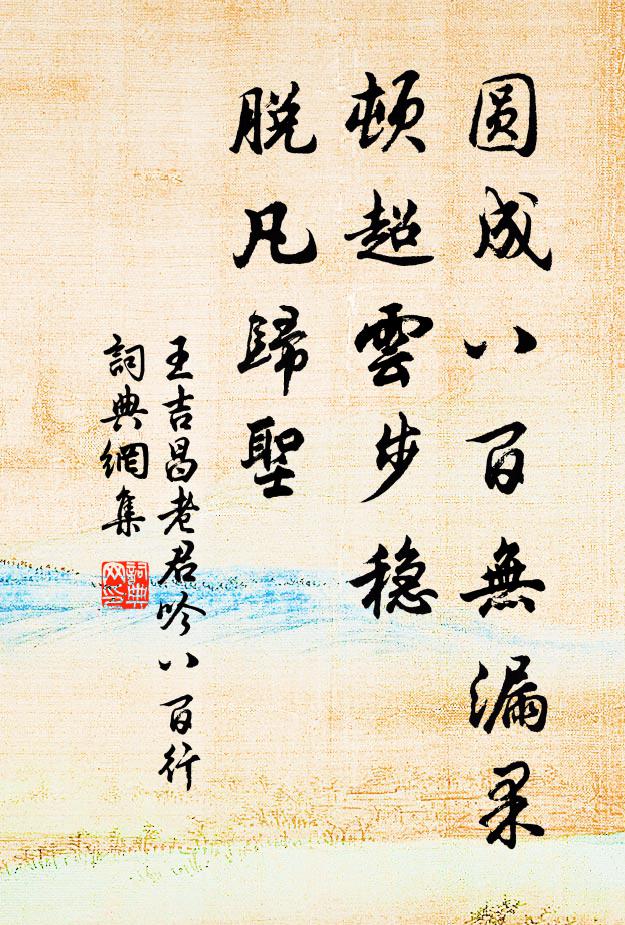 圓成八百無漏果
頓超雲步穩
脫凡歸聖
王吉昌老君吟八百行
詞典網集
詞典网印